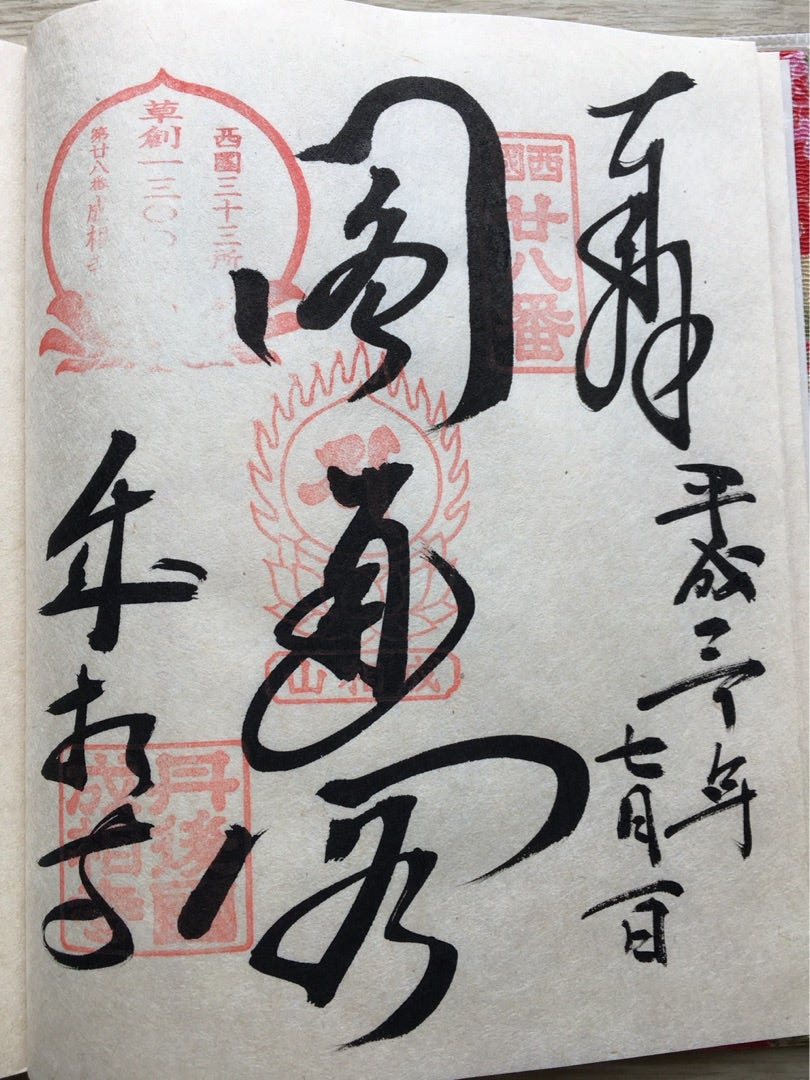 奉拝
平成三十年
七月一日
西國
廿八番
圓通閣
成相山
西國三十三所
草創一三〇〇
第廿八番成相
成相寺
丹後國
成相寺